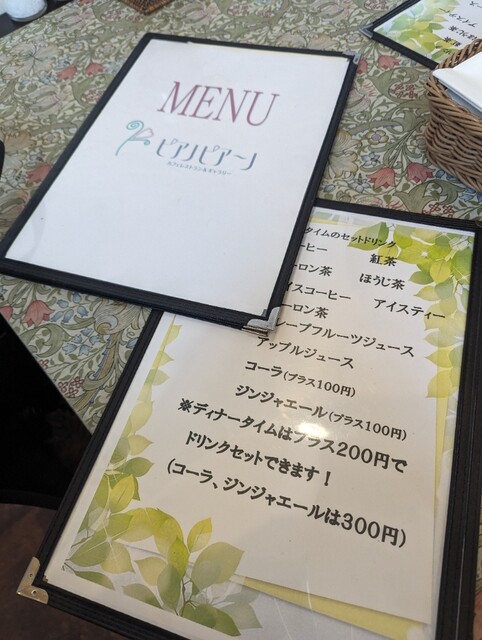 MENU
ピアノピアーノ
カフェレストラン&ギャラリー
タイムのセットドリンク
ーヒー 紅茶
ーロン茶 ほうじ茶
イスコーヒー アイスティー
ーロン茶
レープフルーツジュース
アップルジュース
コーラ(プラス100円)
ジンジャエール(プラス100円)
※ディナータイムはプラス200円で
ドリンクセットできます!
(コーラ、ジンジャエールは300円)